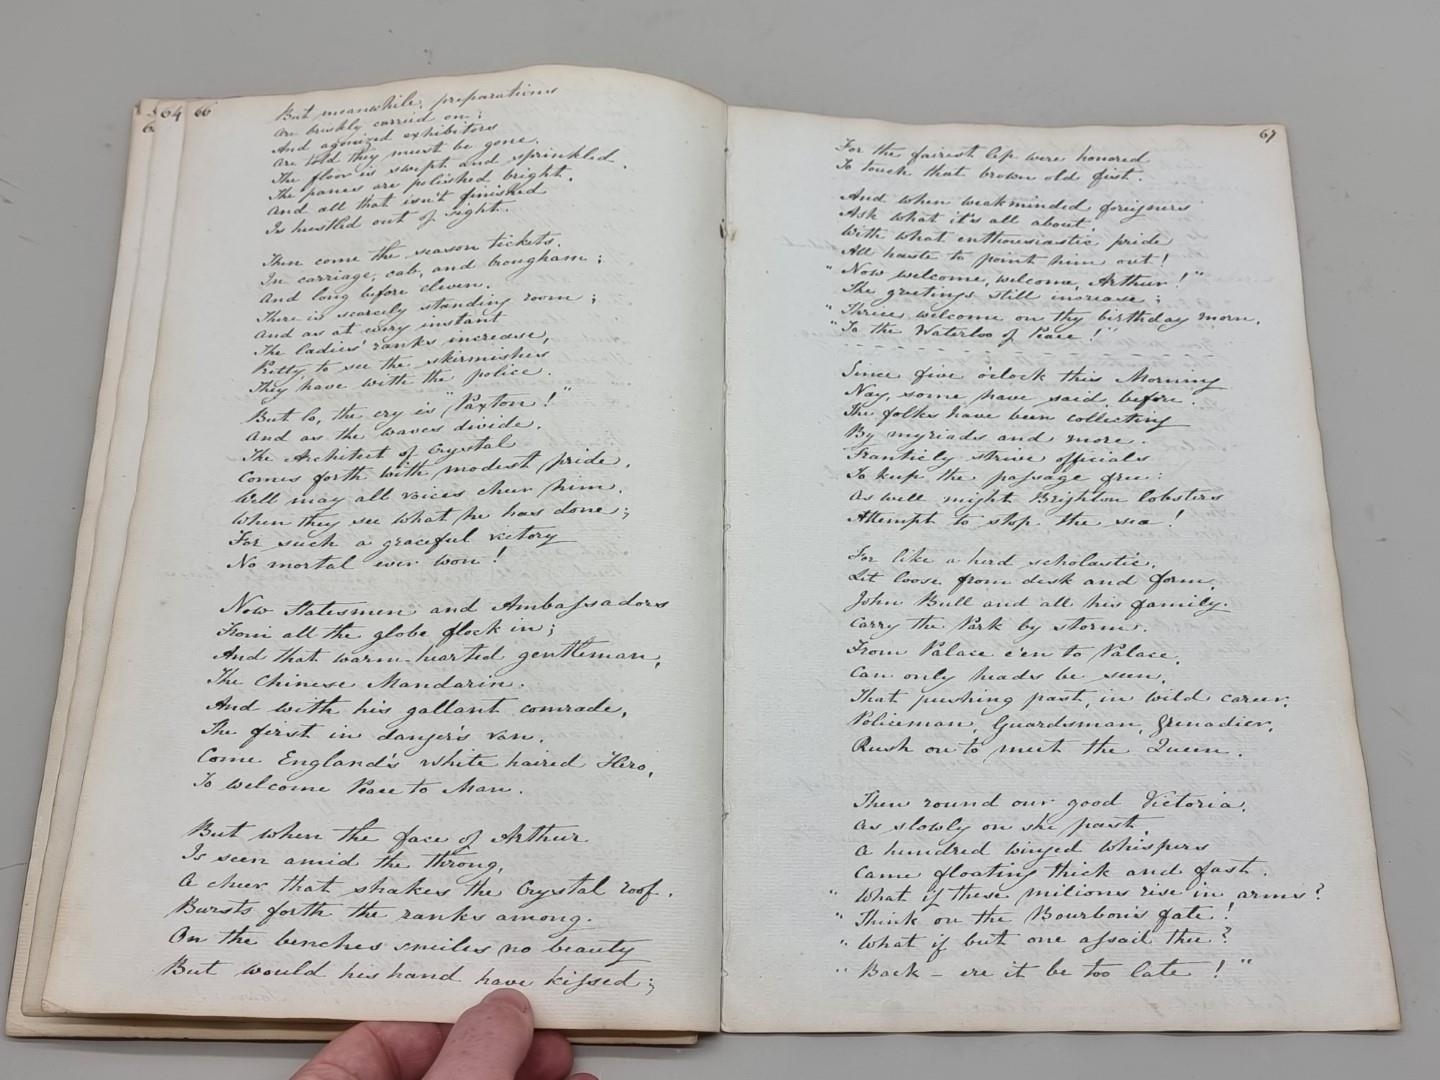 64 66
But meanwhile, preparations
Are briskly carried on;
And agonized exhibitors
Are told they must be gone.
The floor is swept and sprinkled.
The panes are polished bright.
And all that isn't finished
Is hustled out of sight.
Then come the season tickets.
In carriage, cab, and brougham;
And long before eleven.
There is scarcely standing room;
And as at every instant
The ladies' ranks increase,
Pretty to see the skirmishes
They have with the police.
But lo, the cry is "Paxton!"
And as the waves divide.
The Architect of Crystal
Comes forth with modest pride.
Well may all voices cheer him.
When they see what he has done;
For such a graceful victory
No mortal ever won!
Now Statesmen and Ambassadors
From all the globe flock in;
And that warm-hearted gentleman,
The Chinese Mandarin.
And with his gallant comrade,
The first in danger's van.
Come England's white haired Hero,
To welcome Peace to Man.
But when the face of Arthur
Is seen amid the throng,
A cheer that shakes the Crystal roof.
Bursts forth the ranks among.
On the benches smiles no beauty
But would his hand have kissed;
67
For the fairest lip were honored
To touch that brown old fist.
And when weakminded foreigners
Ask what it's all about,
With what enthousiastic pride
All haste to point him out!
"Now welcome, welcome, Arthur!"
The greetings still increase;
"Thrice welcome on thy birthday morn,
"To the Waterloo of Peace!"
Since five o'clock this Morning
Nay, some have said before.
The folks have been collecting
By myriads and more.
Franticly strive officials
To keep the passage free:
As well might Brighton lobsters
Attempt to stop the sea!
For like a herd scholastic,
Let loose from desk and form,
John Bull and all his family.
Carry the Park by storm.
From Palace e'en to Palace,
Can only heads be seen,
That pushing past, in wild career,
Policeman, Guardsman, Grenadier,
Rush on to meet the Queen.
Then round our good Victoria,
As slowly on she past,
A hundred winged whispers
Came floating thick and fast.
"What if these milions rise in arms?
"Think on the Bourbon's fate!
"What if but one assail thee?
"Back - ere it be too late!"